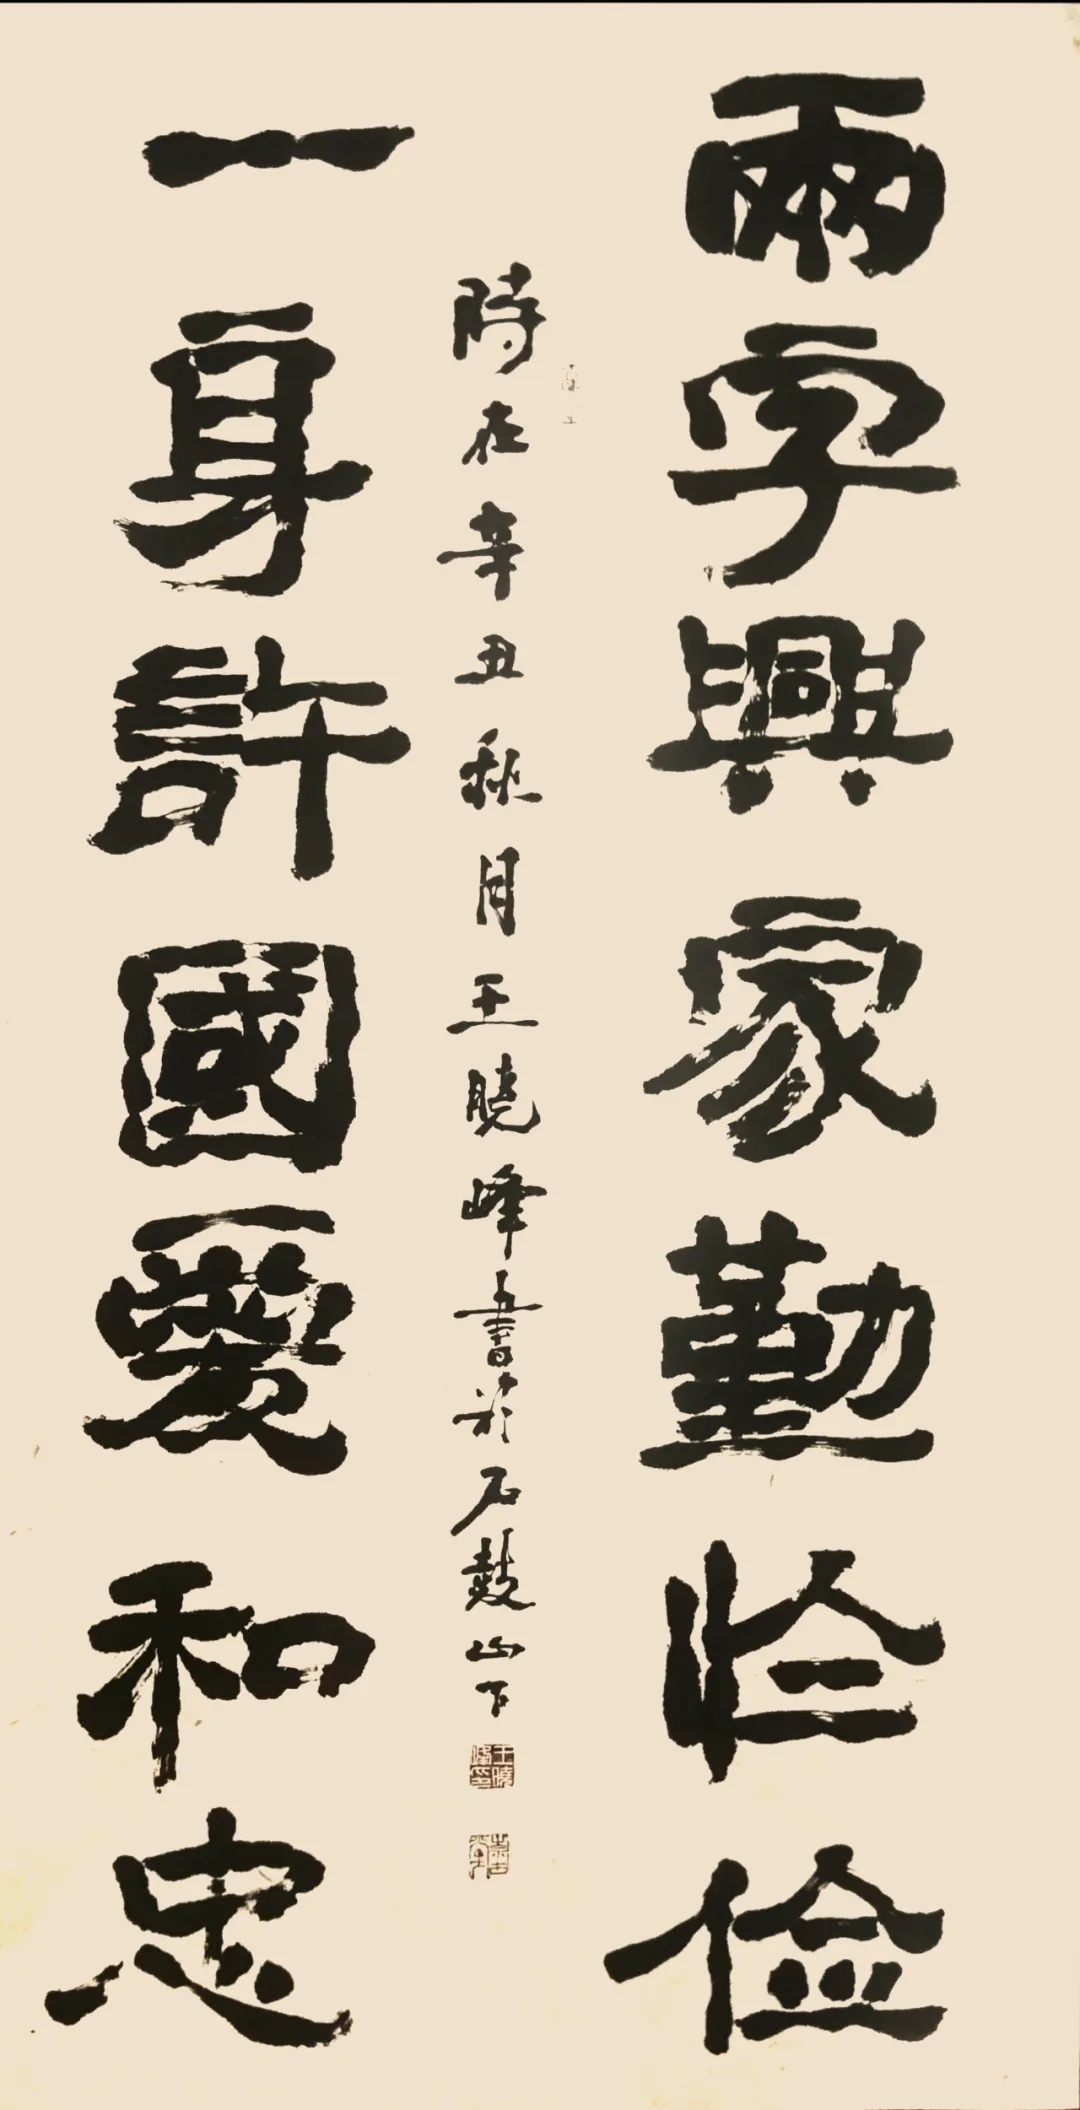 兩字興家勤儉
一身許國愛和忠
時在辛丑秋月王晓峰書於石鼓山下
王曉峰印